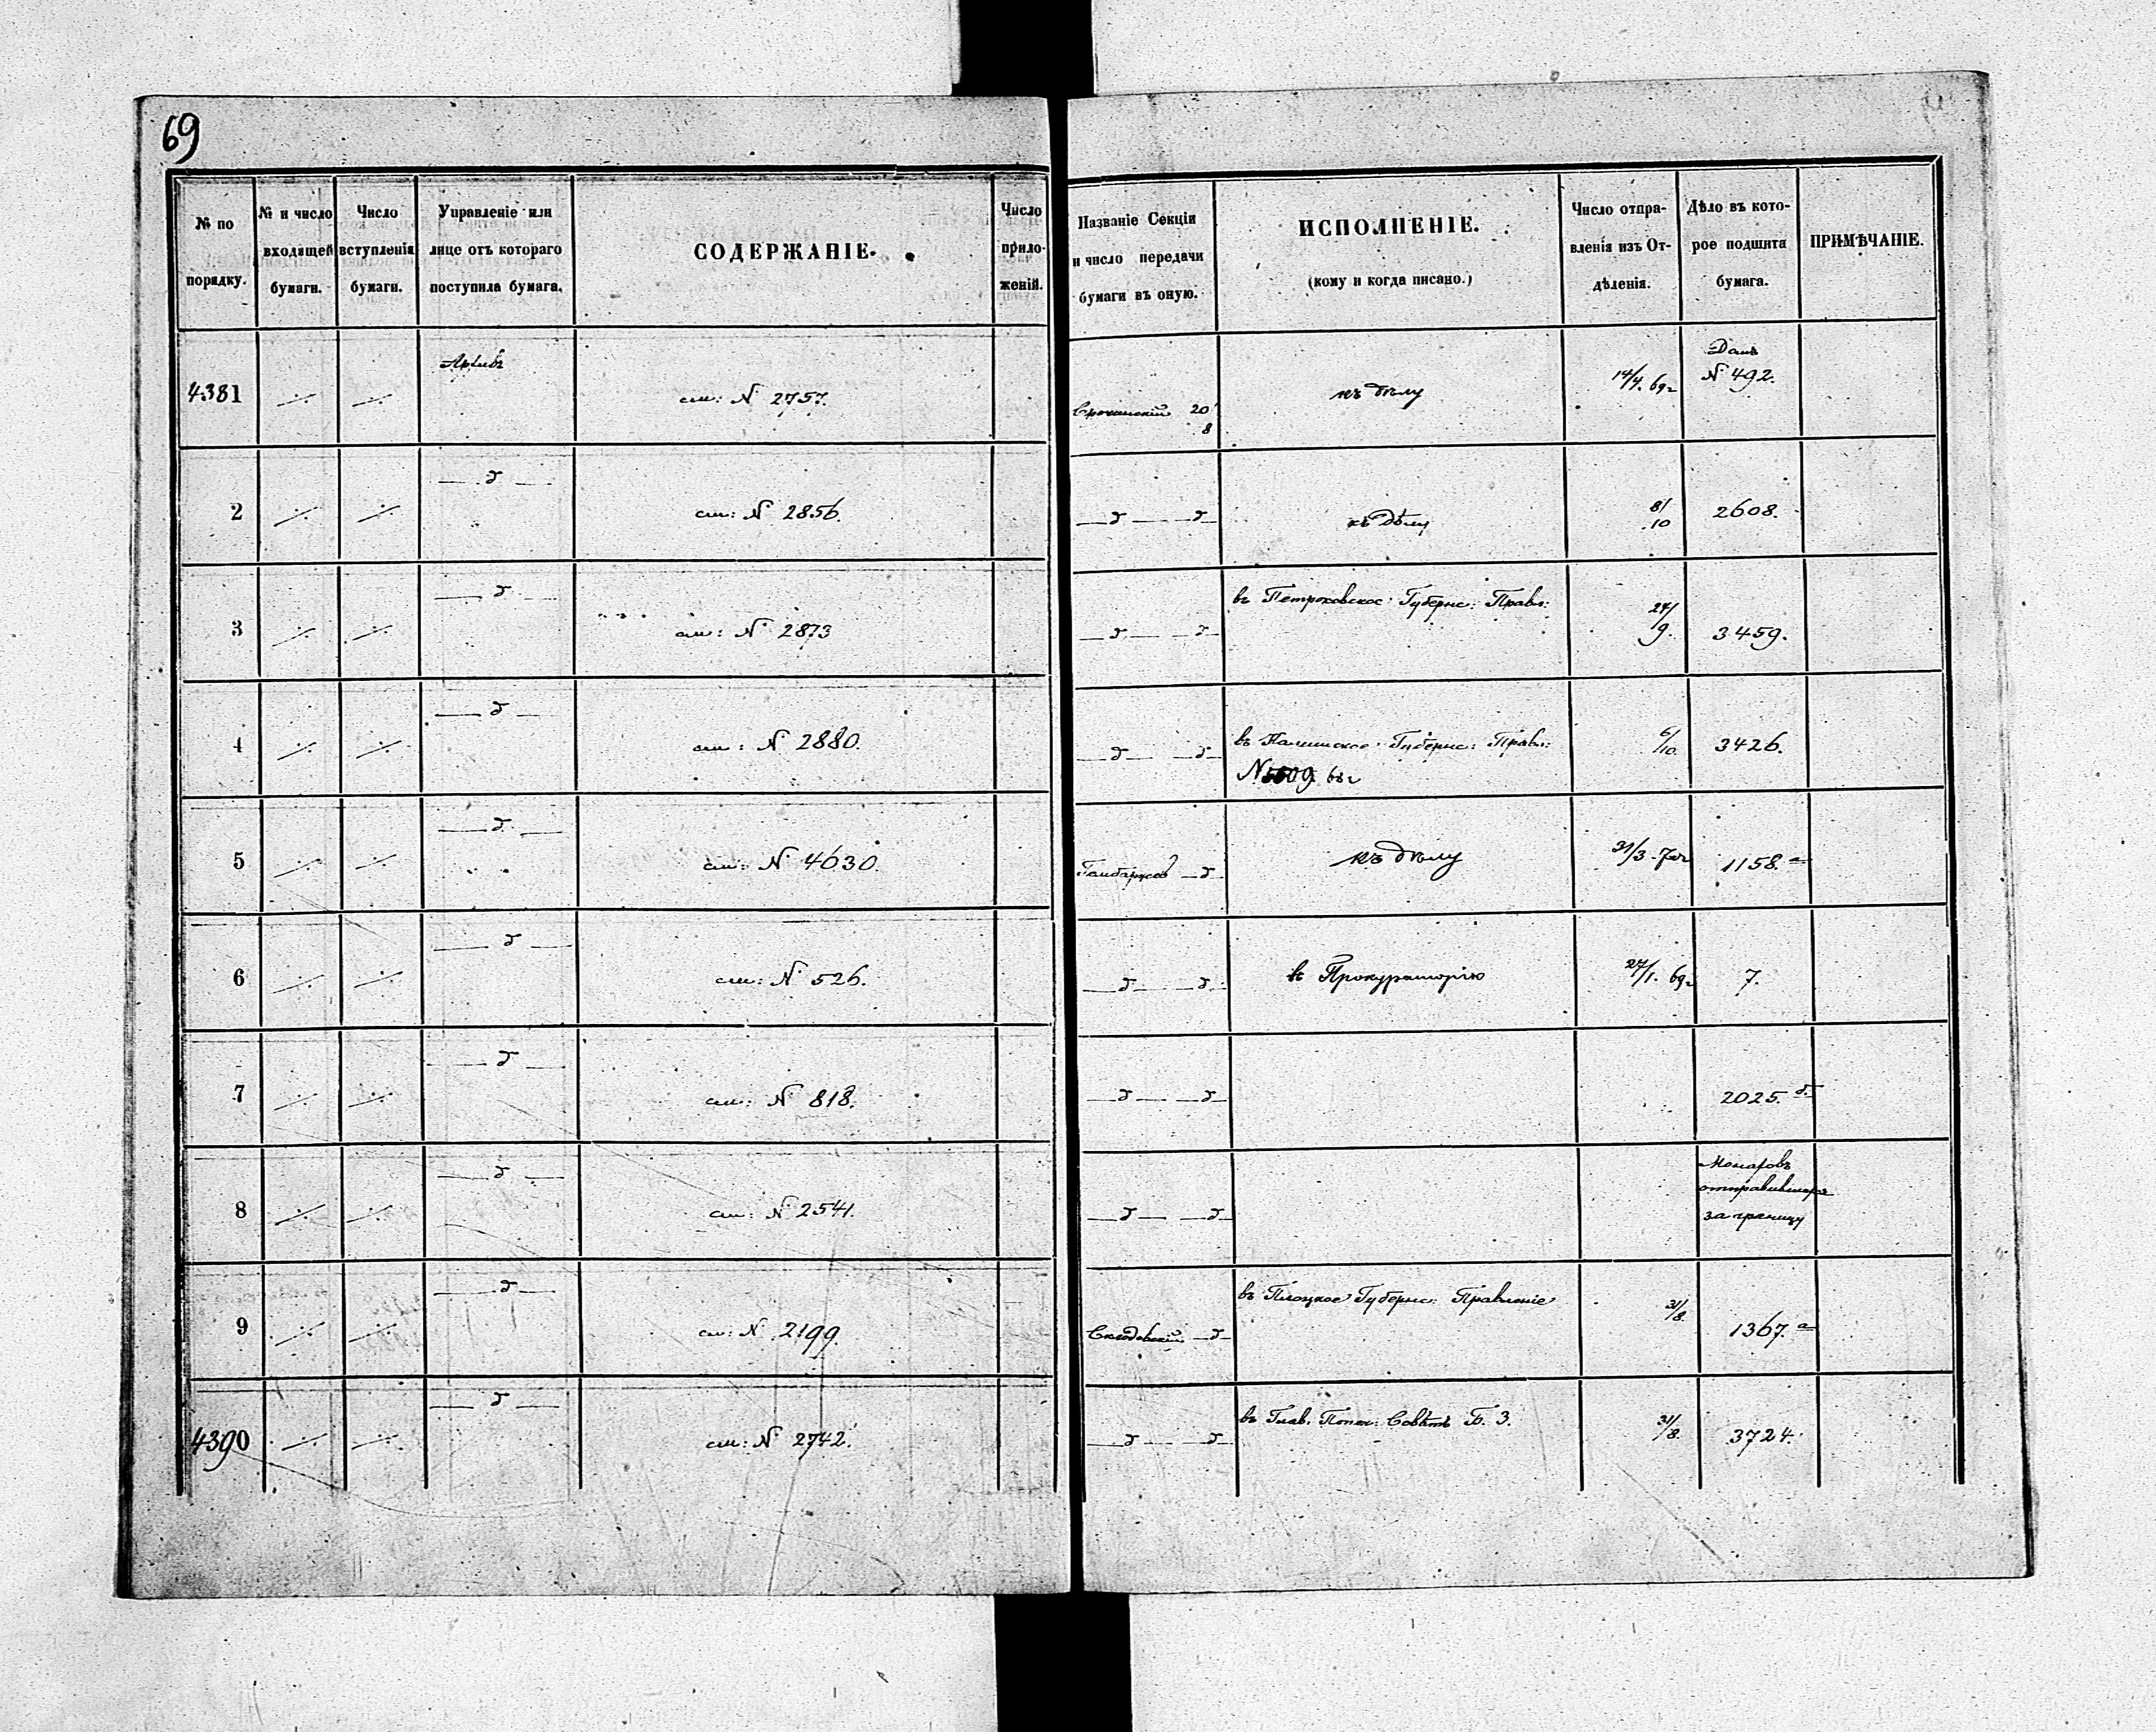 69
№ по порядку.
№ и число входящей бумаги.
Число вступленія бумаги.
Управленіе или лице отъ котораго поступила бумага.
СОДЕРЖАНІЕ.
Число прило-женій.
Названіе Секціи и число передачи бумаги въ оную.
ИСПОЛНЕНІЕ.
(кому и когда писано.)
Число отпра-вленія изъ От-дѣленія.
Дѣло въ кото-рое подшита бумага.
ПРИМѢЧАНІЕ.
4381 ·/· ·/· Архивъ см: № 2757. 20/8 къ дѣлу 14/4. 69г № 492.
2 ·/· ·/· — д — см: № 2856. — д — — д — къ дѣлу 8/10 2608.
3 ·/· ·/· — д — см: № 2873 — д — — д — въ Петроковское Губернс: Правл: 24/9. 3459.
4 ·/· ·/· — д — см: № 2880. — д — — д — въ Калишское Губернс: Правл: 6/10. 3426.
68г
5 ·/· ·/· — д — см: № 4630. — д — къ дѣлу 31/3 70г 1158. а
6 ·/· ·/· — д — см: № 526. — д — — д — въ Прокураторію 27/1. 69г 7.
7 ·/· ·/· — д — см: № 818. — д — — д — 2025. д.
8 ·/· ·/· — д — см: № 2541. — д — — д — за границу
9 ·/· ·/· — д — см: № 2199. — д — въ Плоцкое Губернс: Правленіе 31/8. 1367. а
4390 ·/· ·/· — д — см: № 2742. — д — — д — въ Глав. Попеч: Совѣтъ Б. З. 31/8. 3724.